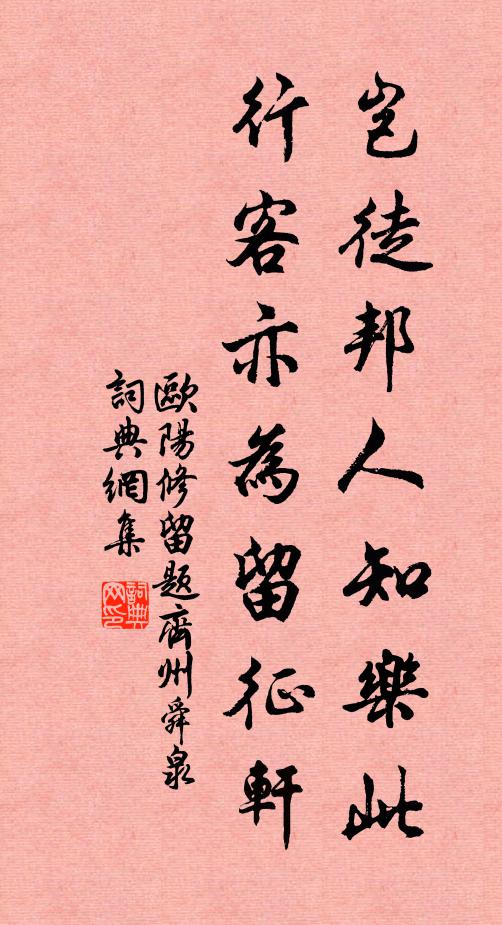 豈徒邦人知樂此
行客亦為留征軒
歐陽修留题齊州舜泉
詞典網集
詞典网印